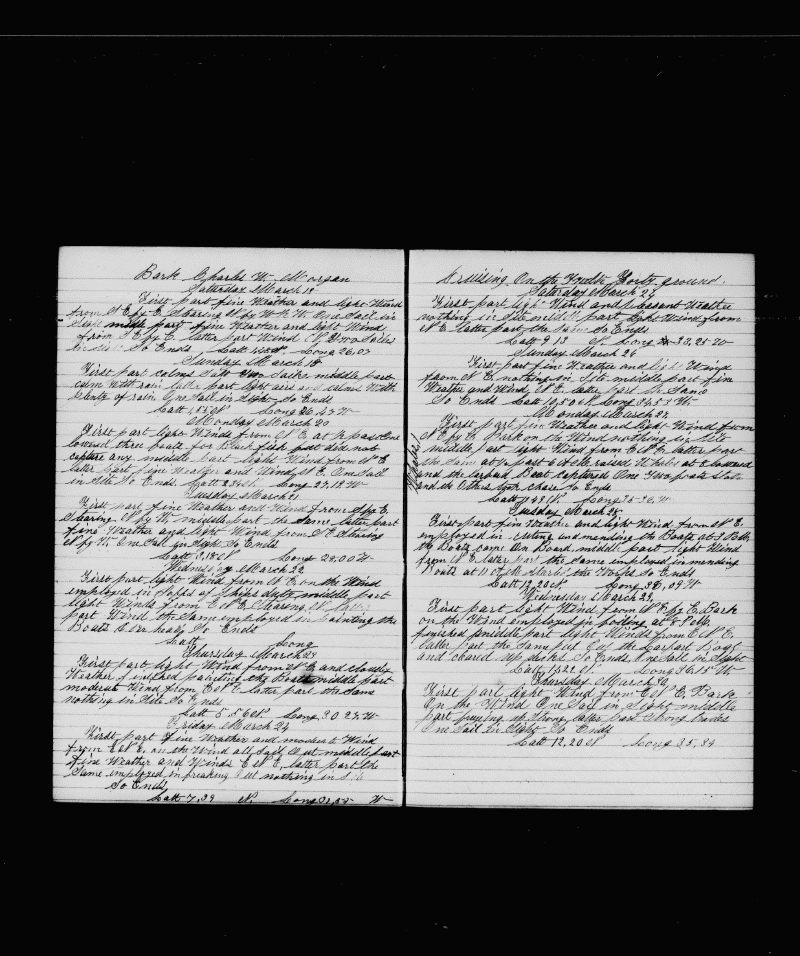 Bark Charles W. Morgan
Saturday March 18
First part fine Weather and light Wind
from S E by E Stearing N by W ½ W One Sail in
Sight middle part of fine Weather and light Wind
from S E by E latter part Wind N E two Sails
in Site So Ends Latt Long 26,07
Sunday March 19
First part calms Sail latter middle part
calm With rain latter part light airs and calms With
plenty of rain One Sail in Sight So Ends
Latt 1,55 N Long 26,47 W
Monday March 20
First part light Wind from N E at ½ pass One
lowered three boats for Black fish but did not
capture any middle part light Wind from N E
latter part fine Weather and Wind N E One Sail
in Site So Ends Latt Long 27,12 W
Tuesday March 21
First part fine Weather and Wind from S by E
Stearing N by W middle part the Same latter part
fine Weather and light Wind from S E Stearing
N by W One Sail in Sight So Ends
Latt 3,18 N Long 28,00 W
Wednsday March 22
First part light Wind from N E on the Wind
employed in Jobbs of Ships duty middle part
light Winds from E N E Stearing N latter
part Wind the Same employed in painting the
Boats Over heads So Ends
Latt Long
Thursday March 23
First part light Wind from N E and cloudy
Weather finished painting the Boats middle part
moderate Wind from E N E latter part the Same
nothing in Site So Ends
Latt 5,56 N Long 30,27 W
Friday March 24
First part fine Weather and moderate Wind
from E N E on the Wind all Sail Out middle part
fine Weather and Winds E N E latter part the
Same employed in breaking Out nothing in Site
So Ends
Latt 7,39 N. Long 31,58 W
Cruising On the Twelve Forty ground.
Saturday March 25
First part light Wind and pleasant Weather
nothing in Site middle part light Wind from
N E latter part the Same So Ends
Latt 9 13 N Long 33,25 W
Sunday March 26
First part fine Weather and light Wind
from N E nothing in Site middle part fine
Weather and Wind N E latter part the Same
So Ends Latt 10,50 N Long 34,53 W
Monday March 27
First part fine Weather and light Wind from
N E by E Bark on the Wind nothing in Site
middle part light Wind from E N E latter part
the Same at ½ past 6 A M raised Whales at 8 lowered
and the Larboard Boat captured One two boats fast
and the Others took chase So Ends
Latt 11,48 N Long 35,30 W
Whales!
Tuesday March 28
First part fine Weather and light Wind from N E.
employed in cutting and mending the Boats at 3 P M
the Boats came On Board middle part light Wind
from N E latter part the Same employed in mending
Boats at 11 O A M Started the Works So Ends
Latt 12,20 N Long 36,09 W
Wednesday March 29
First part light Wind from N E by E Bark
on the Wind employed in boiling at 8 P M
finished middle part light Winds from E N E
latter part the Same put Out the Larboard Boats
and cleared up decks So Ends One Sail in Sight
Latt 13,22 N Long 36,15 W
Thursday March 30
First part light Wind from E N E Bark
On the Wind One Sail in Sight middle
part breezing up Strong latter part Strong Trades
One Sail in Sight So Ends
Latt 12,20 N Long 35,34